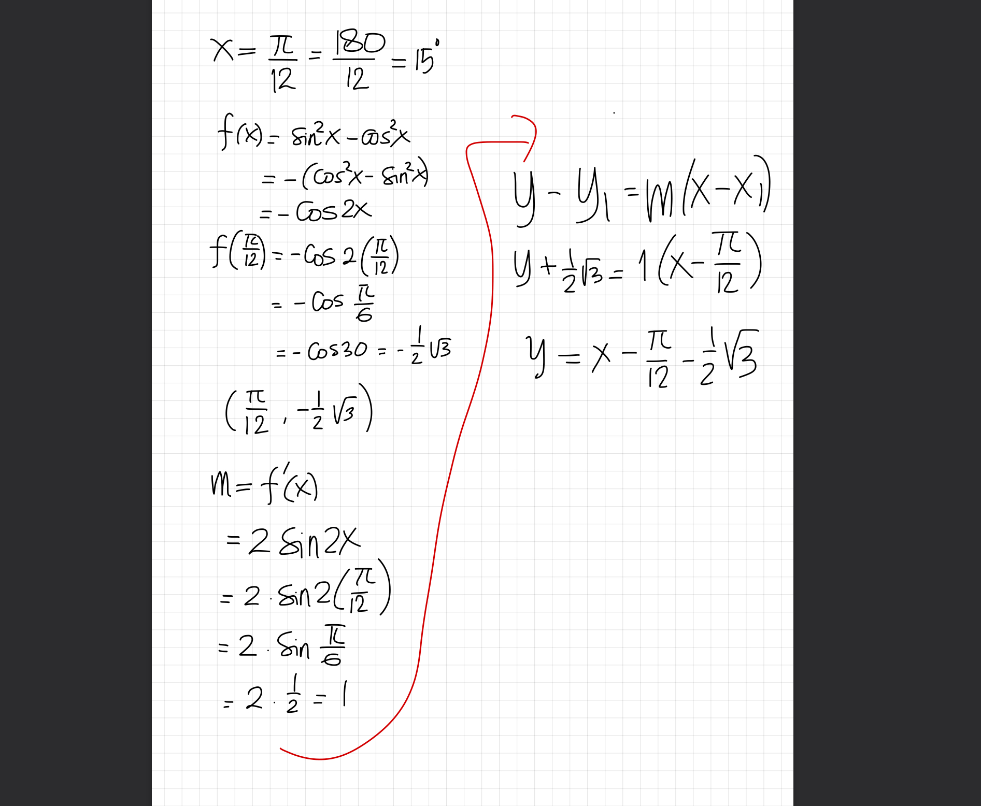 x = π/12 = 180/12 = 15°
f(x) = sin²x - cos²x
= -(cos²x - sin²x)
= - cos 2x
f(π/12) = -cos 2(π/12)
= - cos π/6
= - cos30 = - 1/2 √3
(π/12 , -1/2 √3)
m = f'(x)
= 2 sin 2x
= 2 . sin 2(π/12)
= 2 . sin π/6
= 2 . 1/2 = 1
y - y₁ = m(x - x₁)
y + 1/2 √3 = 1(x - π/12)
y = x - π/12 - 1/2 √3